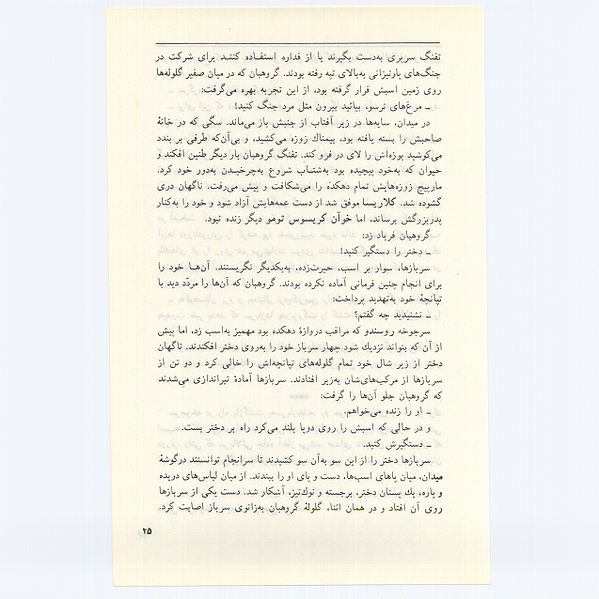 تفنگ سرپری به‌دست بگیرند یا از قداره استفاده کنند برای شرکت در
جنگ‌های پارتیزانی به‌بالای تپه رفته بودند. گروهبان که در میان صفیر گلوله‌ها
روی زمین اسبش قرار گرفته بود، از این تجربه بهره می‌گرفت:
ـ مرغ‌های ترسو، بیائید بیرون مثل مرد جنگ کنید!
در میدان، سایه‌ها در زیر آفتاب از جنبش باز می‌ماند. سگی که در خانهٔ
صاحبش را بسته یافته بود، بیمناك زوزه می‌کشید، و بی‌آن‌که طرفی بر بندد
می‌کوشید پوزه‌اش را لای در فرو کند. تفنگ گروهبان بار دیگر طنین افکند و
حیوان که به‌خود پیچیده بود به‌شتاب شروع به‌چرخیدن به‌دور خود کرد.
مارپیچ زوزه‌هایش تمام دهکده را می‌شکافت و پیش می‌رفت. ناگهان دری
گشوده شد. کلاریسا موفق شد از دست عمه‌هایش آزاد شود و خود را به‌کنار
پدربزرگش برساند، اما خوآن کریسوس تومو دیگر زنده نبود.
گروهبان فریاد زد:
ـ دختر را دستگیر کنید!
سربازها، سوار بر اسب، حیرت‌زده، به‌یکدیگر نگریستند. آن‌ها خود را
برای انجام چنین فرمانی آماده نکرده بودند. گروهبان که آن‌ها را مردّد دید با
تپانچهٔ خود به‌تهدید پرداخت:
ـ نشنیدید چه گفتم؟
سرجوخه روسندو که مراقب دروازهٔ دهکده بود مهمیز به‌اسب زد، اما پیش
از آن که بتواند نزدیك شود چهار سرباز خود را به‌روی دختر افکندند. ناگهان
دختر از زیر شال خود تمام گلوله‌های تپانچه‌اش را خالی کرد و دو تن از
سربازها از مرکب‌های‌شان به‌زیر افتادند. سربازها آمادهٔ تیراندازی می‌شدند
که گروهبان جلو آن‌ها را گرفت:
ـ او را زنده می‌خواهم.
و در حالی که اسبش را روی دوپا بلند می‌کرد راه بر دختر بست.
ـ دستگیرش کنید.
سربازها دختر را از این سو به‌آن سو کشیدند تا سرانجام توانستند درگوشهٔ
میدان، میان پاهای اسب‌ها، دست و پای او را ببندند. از میان لباس‌های دریده
و پاره، یك پستان دختر، برجسته و نوك‌تیز، آشکار شد. دست یکی از سربازها
روی آن افتاد و در همان اثنا، گلولهٔ گروهبان به‌زانوی سرباز اصابت کرد.
۲۵